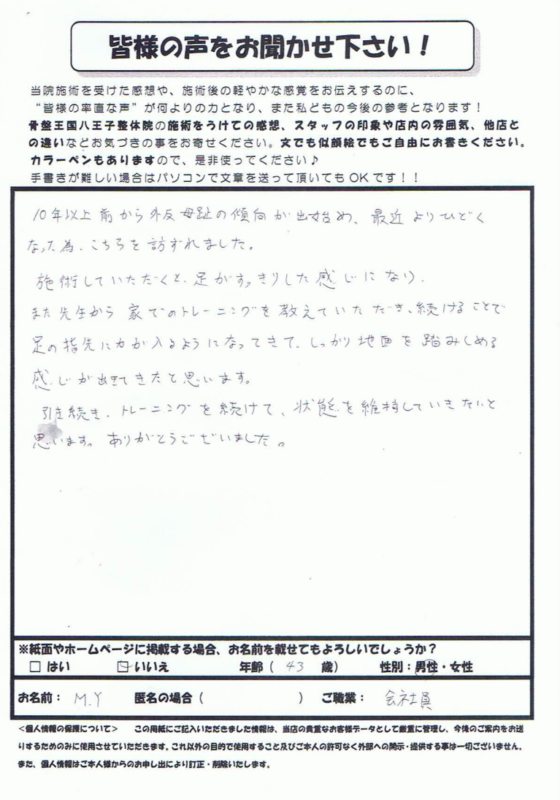 皆様の声をお聞かせ下さい！
当院施術を受けた感想や、施術後の軽やかな感覚をお伝えするのに、
“皆様の率直な声”が何よりの力となり、また私どもの今後の参考となります！
骨盤王国八王子整体院の施術をうけての感想、スタッフの印象や店内の雰囲気、他店と
の違いなどお気づきの事をお寄せください。文でも似顔絵でもご自由にお書きください。
カラーペンもありますので、是非使ってください♪
手書きが難しい場合はパソコンで文章を送って頂いてもOKです！！
10年以上前から外反母趾の傾向が出始め、最近よりひどく
なった為、こちらを訪ずれました。
施術していただくと、足がすっきりした感じになり、
また先生から家でのトレーニングを教えていただき、続けることで
足の指先に力が入るようになってきて、しっかり地面を踏みしめる
感じが出てきたと思います。
引き続き、トレーニングを続けて、状態を維持していきたいと
思います。ありがとうございました。
※紙面やホームページに掲載する場合、お名前を載せてもよろしいでしょうか？
□ はい □ いいえ 年齢（ 43 歳） 性別：男性・女性
お名前： M.Y 匿名の場合（ ） ご職業： 会社員
＜個人情報の保護について＞ この用紙にご記入いただきました情報は、当店の貴重なお客様データとして厳重に管理し、今後のご案内をお送
りするためのみに使用させていただきます。これ以外の目的で使用すること及びご本人の許可なく外部への開示・提供する事は一切ございません。
また、個人情報はご本人様からのお申し出により訂正・削除いたします。